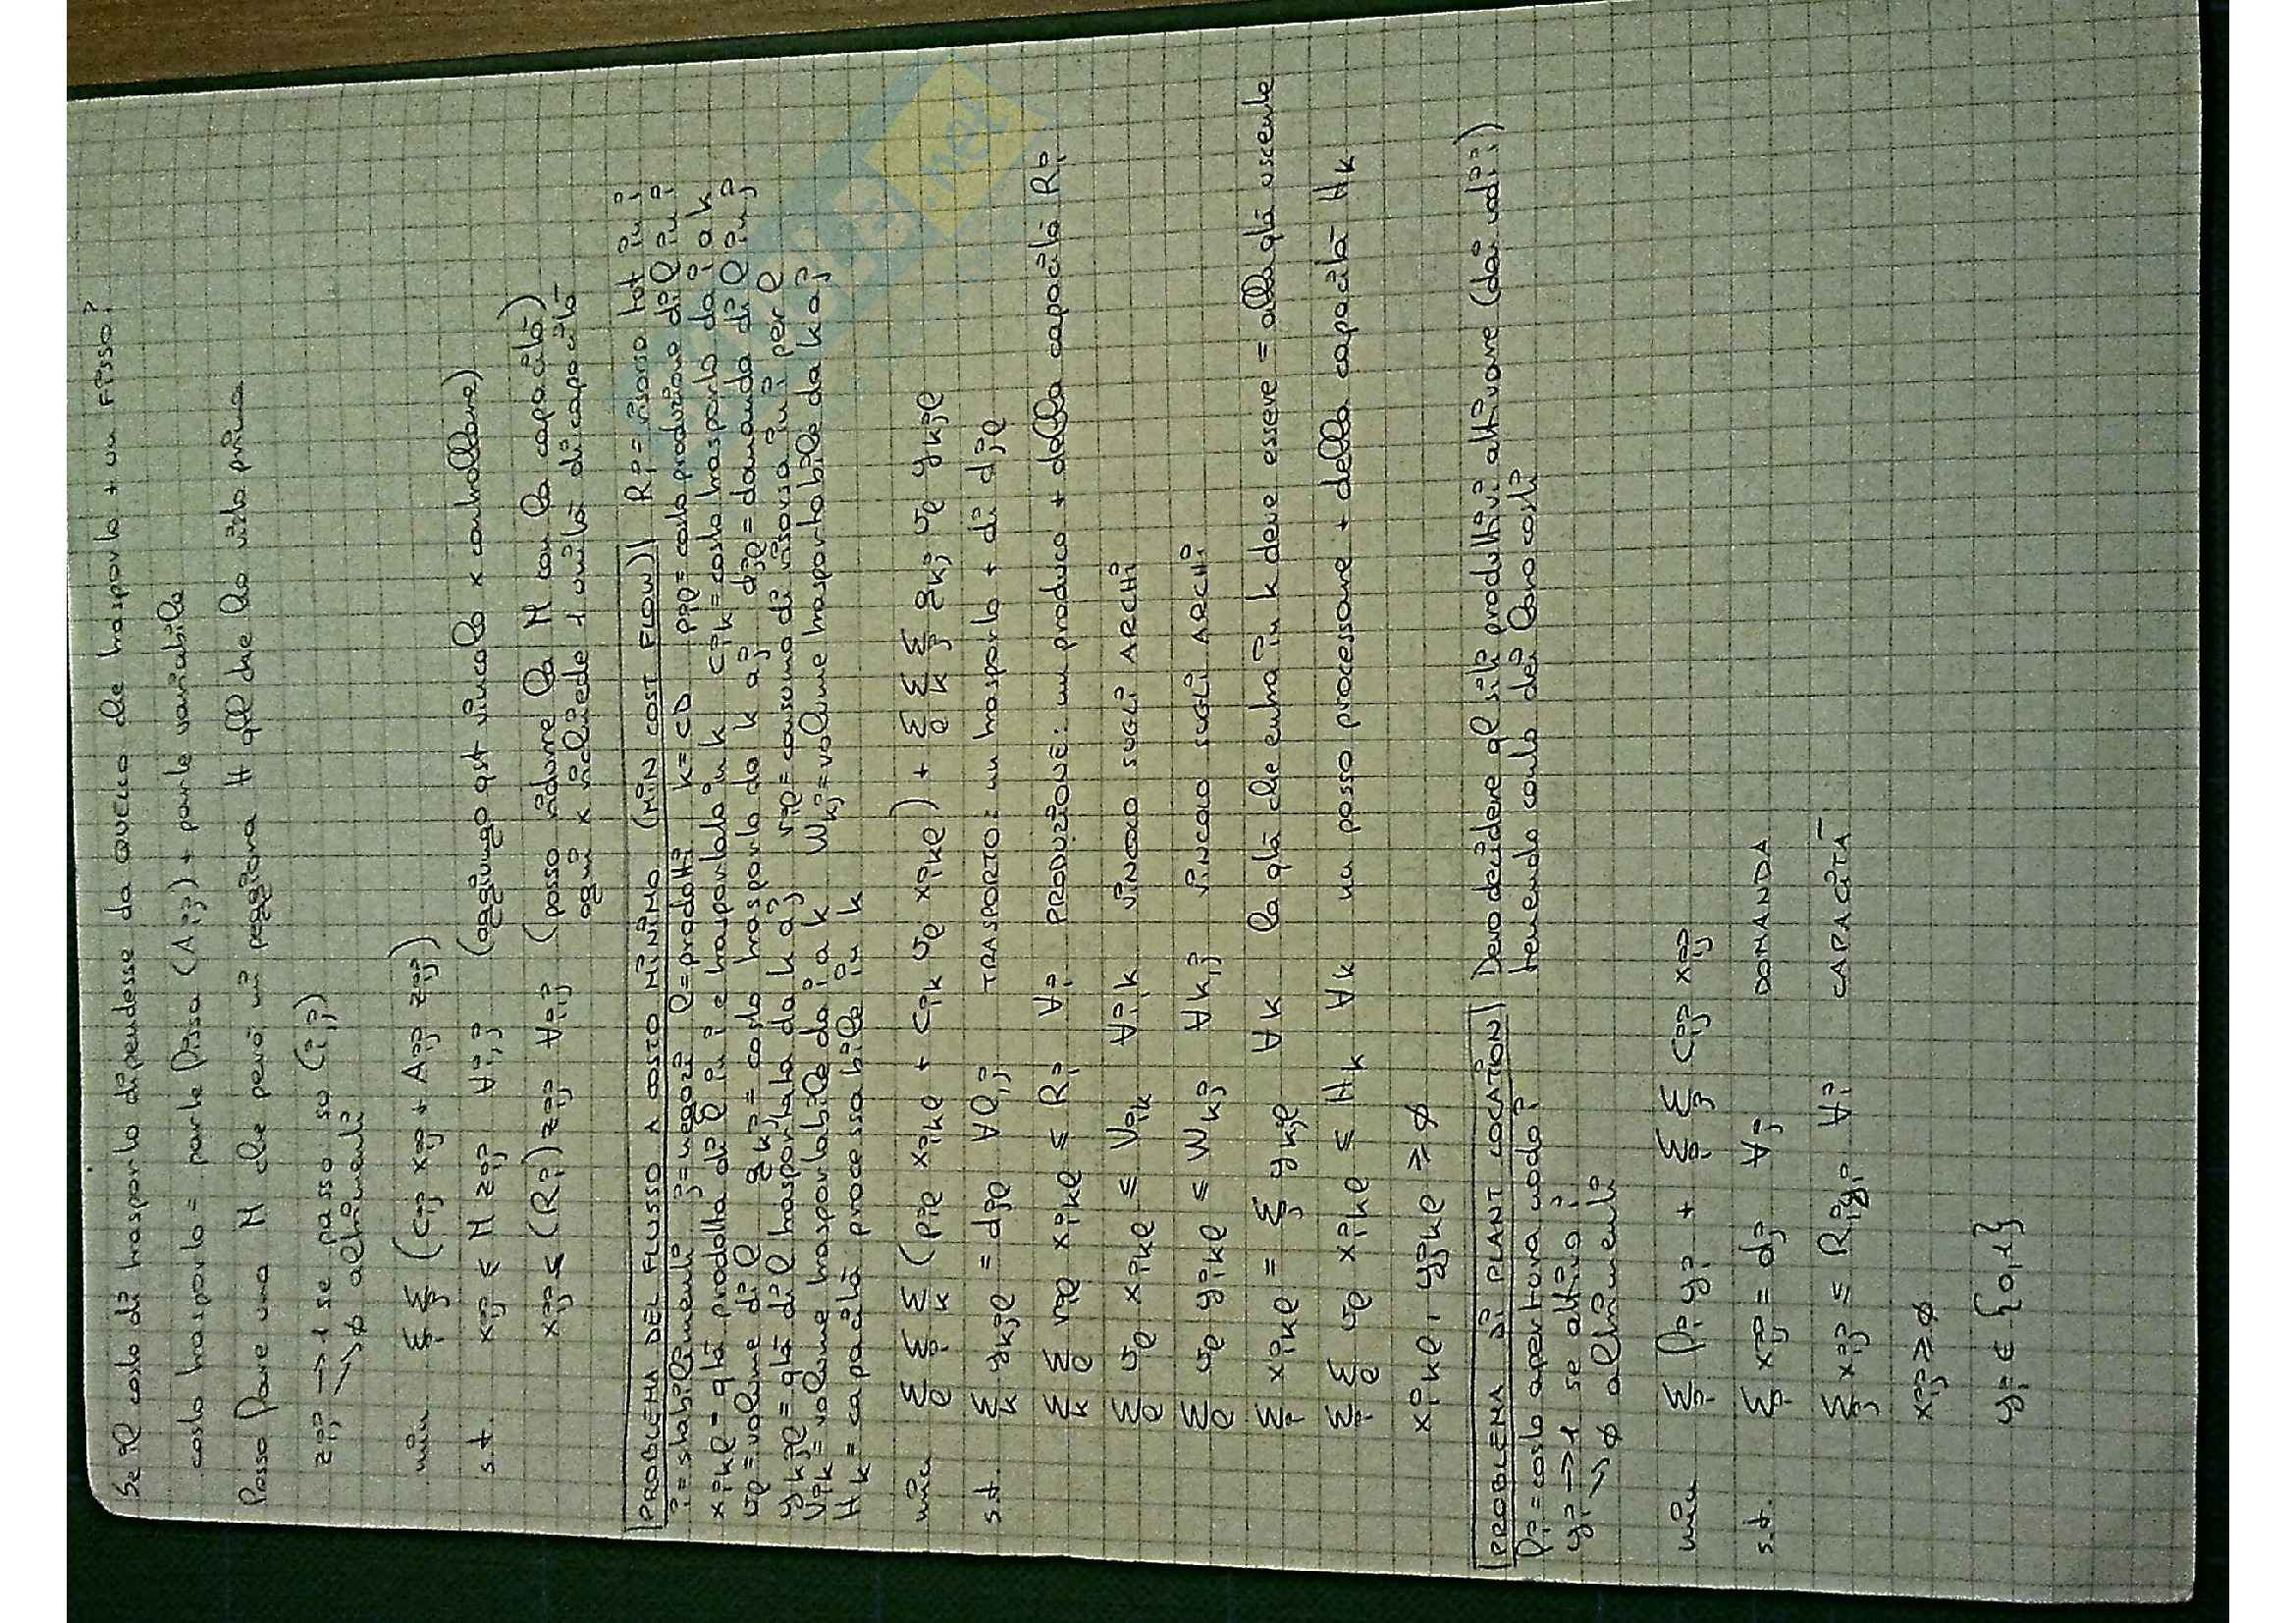 Se il costo di trasporto dipendesse da quello che trasporto + un fisso?
costo trasporto = parte fissa (Aij) + parte variabile
Posso fare una M che però mi peggiora # all che ho visto prima
zij → 1 se passo su (i,j)
→ ∅ altrimenti
min Σi Σj (cij xij + Aij zij)
s.t. xij ≤ M zij ∀i,j (aggiungo qst vincolo x controllare)
xij ≤ (Ri) zij ∀i,j (posso ridurre la M con la capacità)
ogni x richiede 1 unità di capacità
PROBLEMA DEL FLUSSO A COSTO MINIMO (MIN COST FLOW) Ri = risorsa tot in i
i = stabilimenti j = negozi l = prodotti k = CD pil = costo produzione di l in i
xikl = qtà prodotta di l in i e trasportato in k cik = costo trasporto da i a k
vl = volume di l gkj = costo trasporto da k a j djl = domanda di l in j
ykjl = qtà di l trasportata da k a j ril = consumo di risorsa in i per l
Vik = volume trasportabile da i a k Wkj = volume trasportabile da k a j
Hk = capacità processabile in k
min Σl Σi Σk (pil xikl + cik vl xikl) + Σl Σk Σj gkj vl ykjl
s.t. Σk ykjl = djl ∀l,j TRASPORTO: nn trasporto + di djl
Σk Σl ril xikl ≤ Ri ∀i PRODUZIONE: nn produco + della capacità Ri
Σl vl xikl ≤ Vik ∀i,k VINCOLO SUGLI ARCHI
Σl vl yjkl ≤ Wkj ∀k,j VINCOLO SUGLI ARCHI
Σi xikl = Σj ykjl ∀k la qtà che entra in k deve essere = alla qtà uscente
Σi Σl vl xikl ≤ Hk ∀k nn posso processare + della capacità Hk
xikl, yjkl ≥ ∅
PROBLEMA DI PLANT LOCATION Devo decidere ql siti produttivi attivare (dai nodi i)
fi = costo apertura nodo i tenendo conto dei loro costi
yi → 1 se attivo i
→ ∅ altrimenti
min Σi fi yi + Σi Σj cij xij
s.t. Σi xij = dj ∀j DOMANDA
Σj xij ≤ Ri yi ∀i CAPACITÀ
xij ≥ ∅
yi ∈ {0,1}